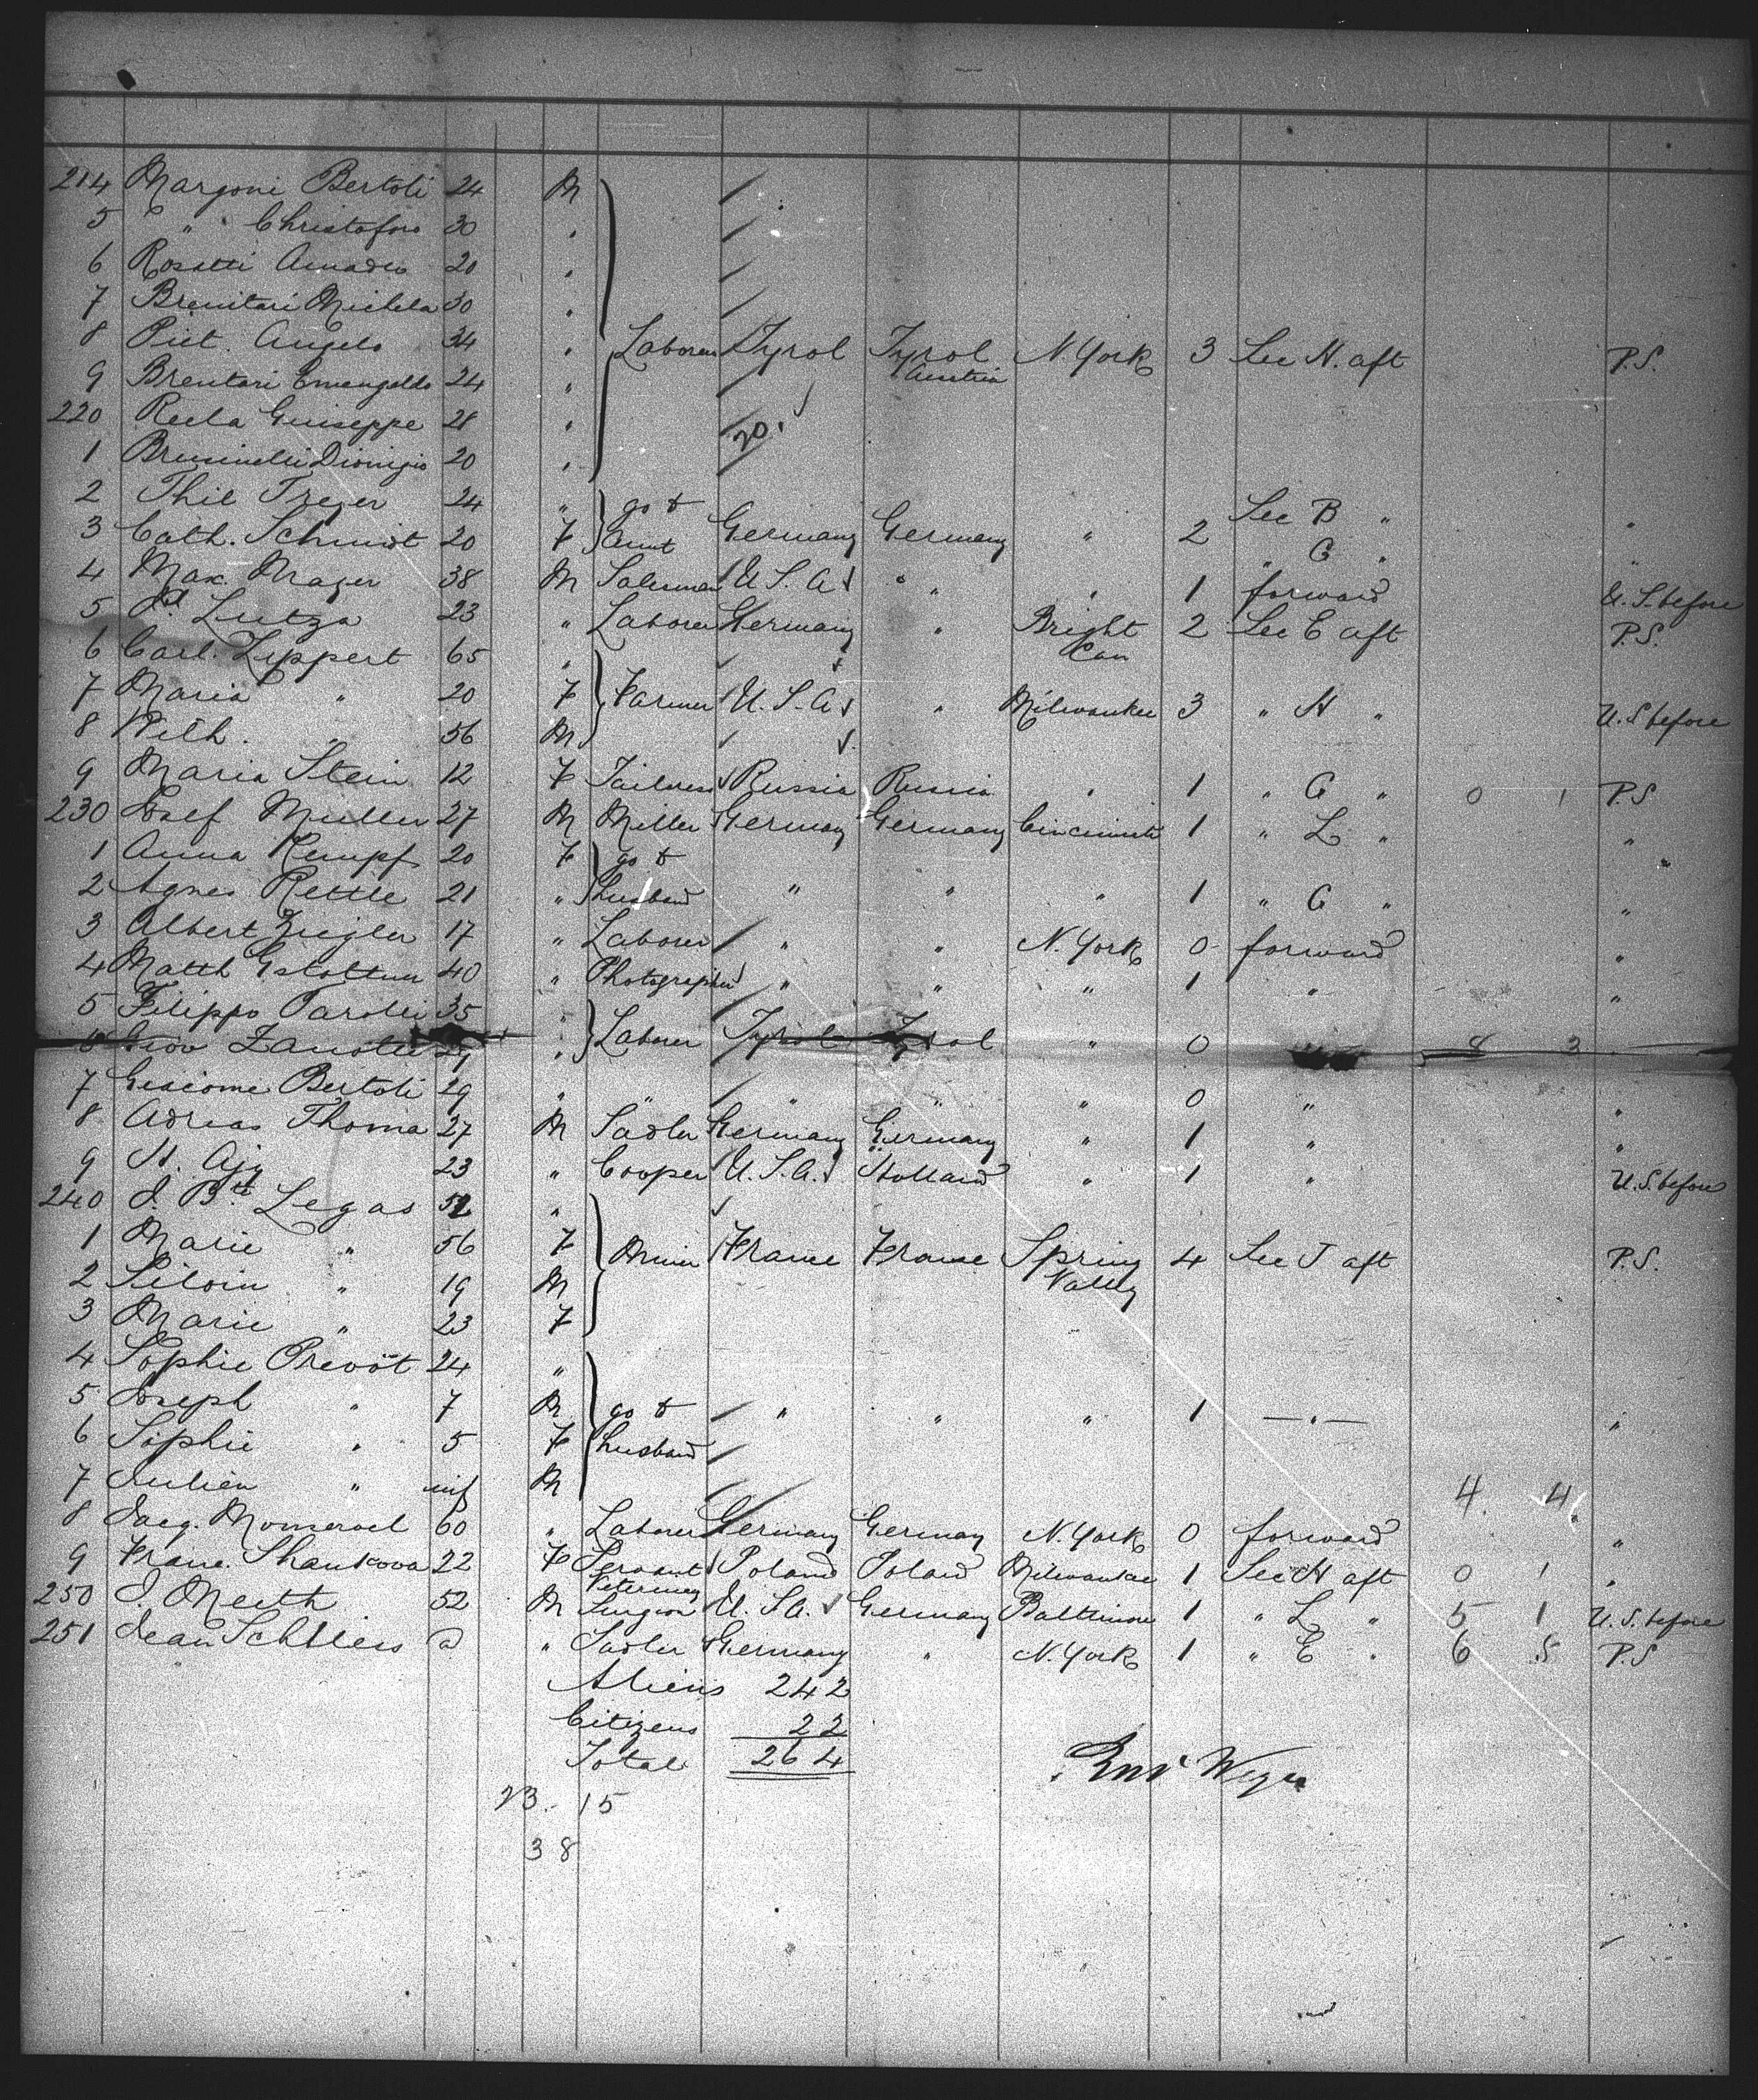 214 Margoni Bertoli 24 M
5 " Christoforo 30 "
6 Rosatti Amadeo 20 "
7 Brenitari Michela 30 "
8 Piet. Angelo 34 " Laborer Tyrol Tyrol Austria N. York 3 See H. aft P.S.
9 Brentari Emengeldo 24 "
220 Guiseppe 28 " 20
1 Brusinelli Dionigio 20 "
2 Thil Treger 24 " go to See B "
3 Cath. Schmidt 20 F aunt Germany Germany " 2 " G " "
4 Max. Mager 38 M Salesman U.S.A " " 1 forward U.S. before
5 Lutza 23 " Laborer Germany " Bright Can 2 See E aft P.S.
6 Carl. Zippert 65 "
7 Maria " 20 F Farmer U.S.A " Milwaukee 3 " H " U.S before
8 Wilh. " 56 M
9 Maria Stein 12 F Tailoress Russia Russia " 1 " G " 0 1 P.S
230 Josef Muller 27 M Miller Germany Germany Cincinnati 1 " L " "
1 Anna Kempf 20 F go to "
2 Agnes Rettle 21 " husband " " " 1 " G " "
3 Albert Ziegler 17 " Laborer " " N. York 0 forward "
4 Matth 40 " Photographer " " " 1 " "
5 Filippo Parolli 35 "
6 Giov Zanotti 29 " Laborer Tyrol Tyrol " 0 8 3 "
7 Bertoli 29 " " " " " 0 " "
8 Adreas Thoma 27 M Sadler Germany Germany " 1 " "
9 H. Ajy 23 " Cooper U.S.A. Holland " 1 " U.S. before
240 J. Bte Legas 52 "
1 Marie " 56 F Miner France France Spring Valley 4 See J aft P.S.
2 Silvin " 19 M
3 Marie " 23 F
4 Sophie Prevot 24 "
5 Joseph " 7 M go to " " " 1 — " — "
6 Sophie " 5 F husband
7 Julien " inf M 4 4
8 Jacq. Momervel 60 " Laborer Germany Germany N. York 0 forward "
9 Franc. Shankova 22 F Servant Poland Poland Milwaukee 1 See H aft 0 1 "
250 J. Meeth 52 M Veterinary Surgeon U.S.A. Germany Baltimore 1 " L " 5 1 U.S. before
251 Jean Schlleis a " Sadler Germany " N. York 1 " E " 6 5 P.S
Aliens 242
Citizens 22
Total 264
23. 15
38